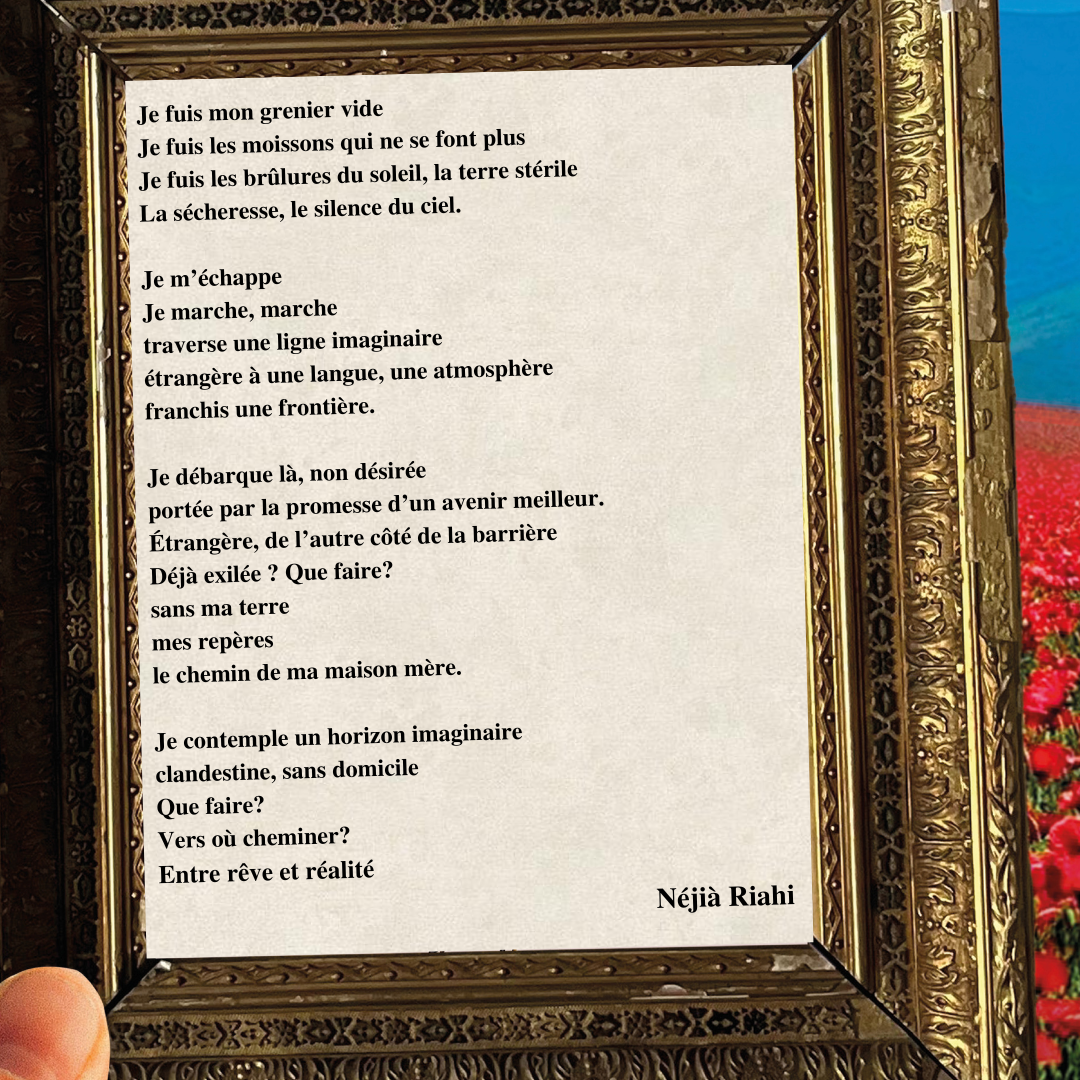 Je fuis mon grenier vide
Je fuis les moissons qui ne se font plus
Je fuis les brûlures du soleil, la terre stérile
La sécheresse, le silence du ciel.
Je m’échappe
Je marche, marche
traverse une ligne imaginaire
étrangère à une langue, une atmosphère
franchis une frontière.
Je débarque là, non désirée
portée par la promesse d’un avenir meilleur.
Étrangère, de l’autre côté de la barrière
Déjà exilée ? Que faire?
sans ma terre
mes repères
le chemin de ma maison mère.
Je contemple un horizon imaginaire
clandestine, sans domicile
Que faire?
Vers où cheminer?
Entre rêve et réalité
Néjià Riahi